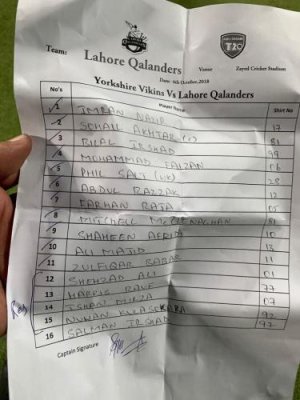 ABU DHABI
T20
Team: Lahore Qalanders
Venue Zayed Cricket Stadium
Date: 6th October, 2018
Yorkshire Vikins Vs Lahore Qalanders
No's Player Name Shirt No
1 IMRAN NAZIR
2 SOHAIL AKHTAR (C) 17
3 BILAL IRSHAD 81
4 MOHAMMAD FAIZAN 99
5 PHIL SALT (UK)
6 ABDUL RAZZAK 28
7 FARHAN RAJA 12
8 MITCHELL McCLENAGHAN
9 SHAHEEN AFRIDI
10 ALI MAJID 10
11 ZULFIQAR BABAR 13
12 SHEHZAD ALI 11
13 HARRIS RAUF 01
14 ISHAN MIRZA 77
15 NUWAN KULASEKARA 07
16 SALMAN IRSHAD 92
97
Captain Signature